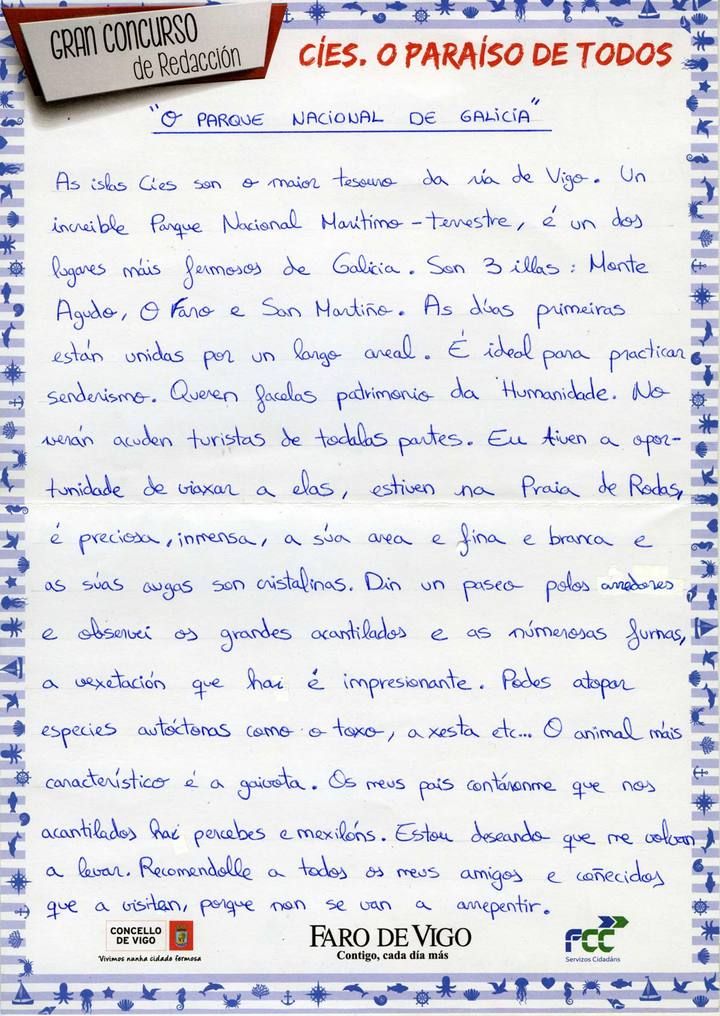 GRAN CONCURSO
de Redacción
CÍES. O PARAÍSO DE TODOS
"O PARQUE NACIONAL DE GALICIA"
As islas Cíes son o maior tesouro da ría de Vigo. Un
increible Parque Nacional Marítimo-terrestre, é un dos
lugares máis fermosos de Galicia. Son 3 illas: Monte
Agudo, O Faro e San Martiño. As dúas primeiras
están unidas por un largo areal. É ideal para practicar
senderismo. Queren facelas patrimonio da Humanidade. No
verán acuden turistas de todalas partes. Eu tiven a opor-
tunidade de viaxar a elas, estiven na Praia de Rodas,
é preciosa, inmensa, a súa area e fina e branca e
as súas augas son cristalinas. Din un paseo polos arredores
e observei os grandes acantilados e as númerosas furnas,
a vexetación que hai é impresionante. Podes atopar
especies autóctonas como o toxo, a xesta etc... O animal máis
característico é a gaivota. Os meus pais contáronme que nos
acantilados hai percebes e mexilóns. Estou deseando que me volvan
a levar. Recomendolle a todos os meus amigos e coñecidos
que a visiten, porque non se van a arrepentir.
CONCELLO
DE VIGO
Vivimos nunha cidade fermosa
FARO DE VIGO
Contigo, cada día más
FCC
Servizos Cidadáns